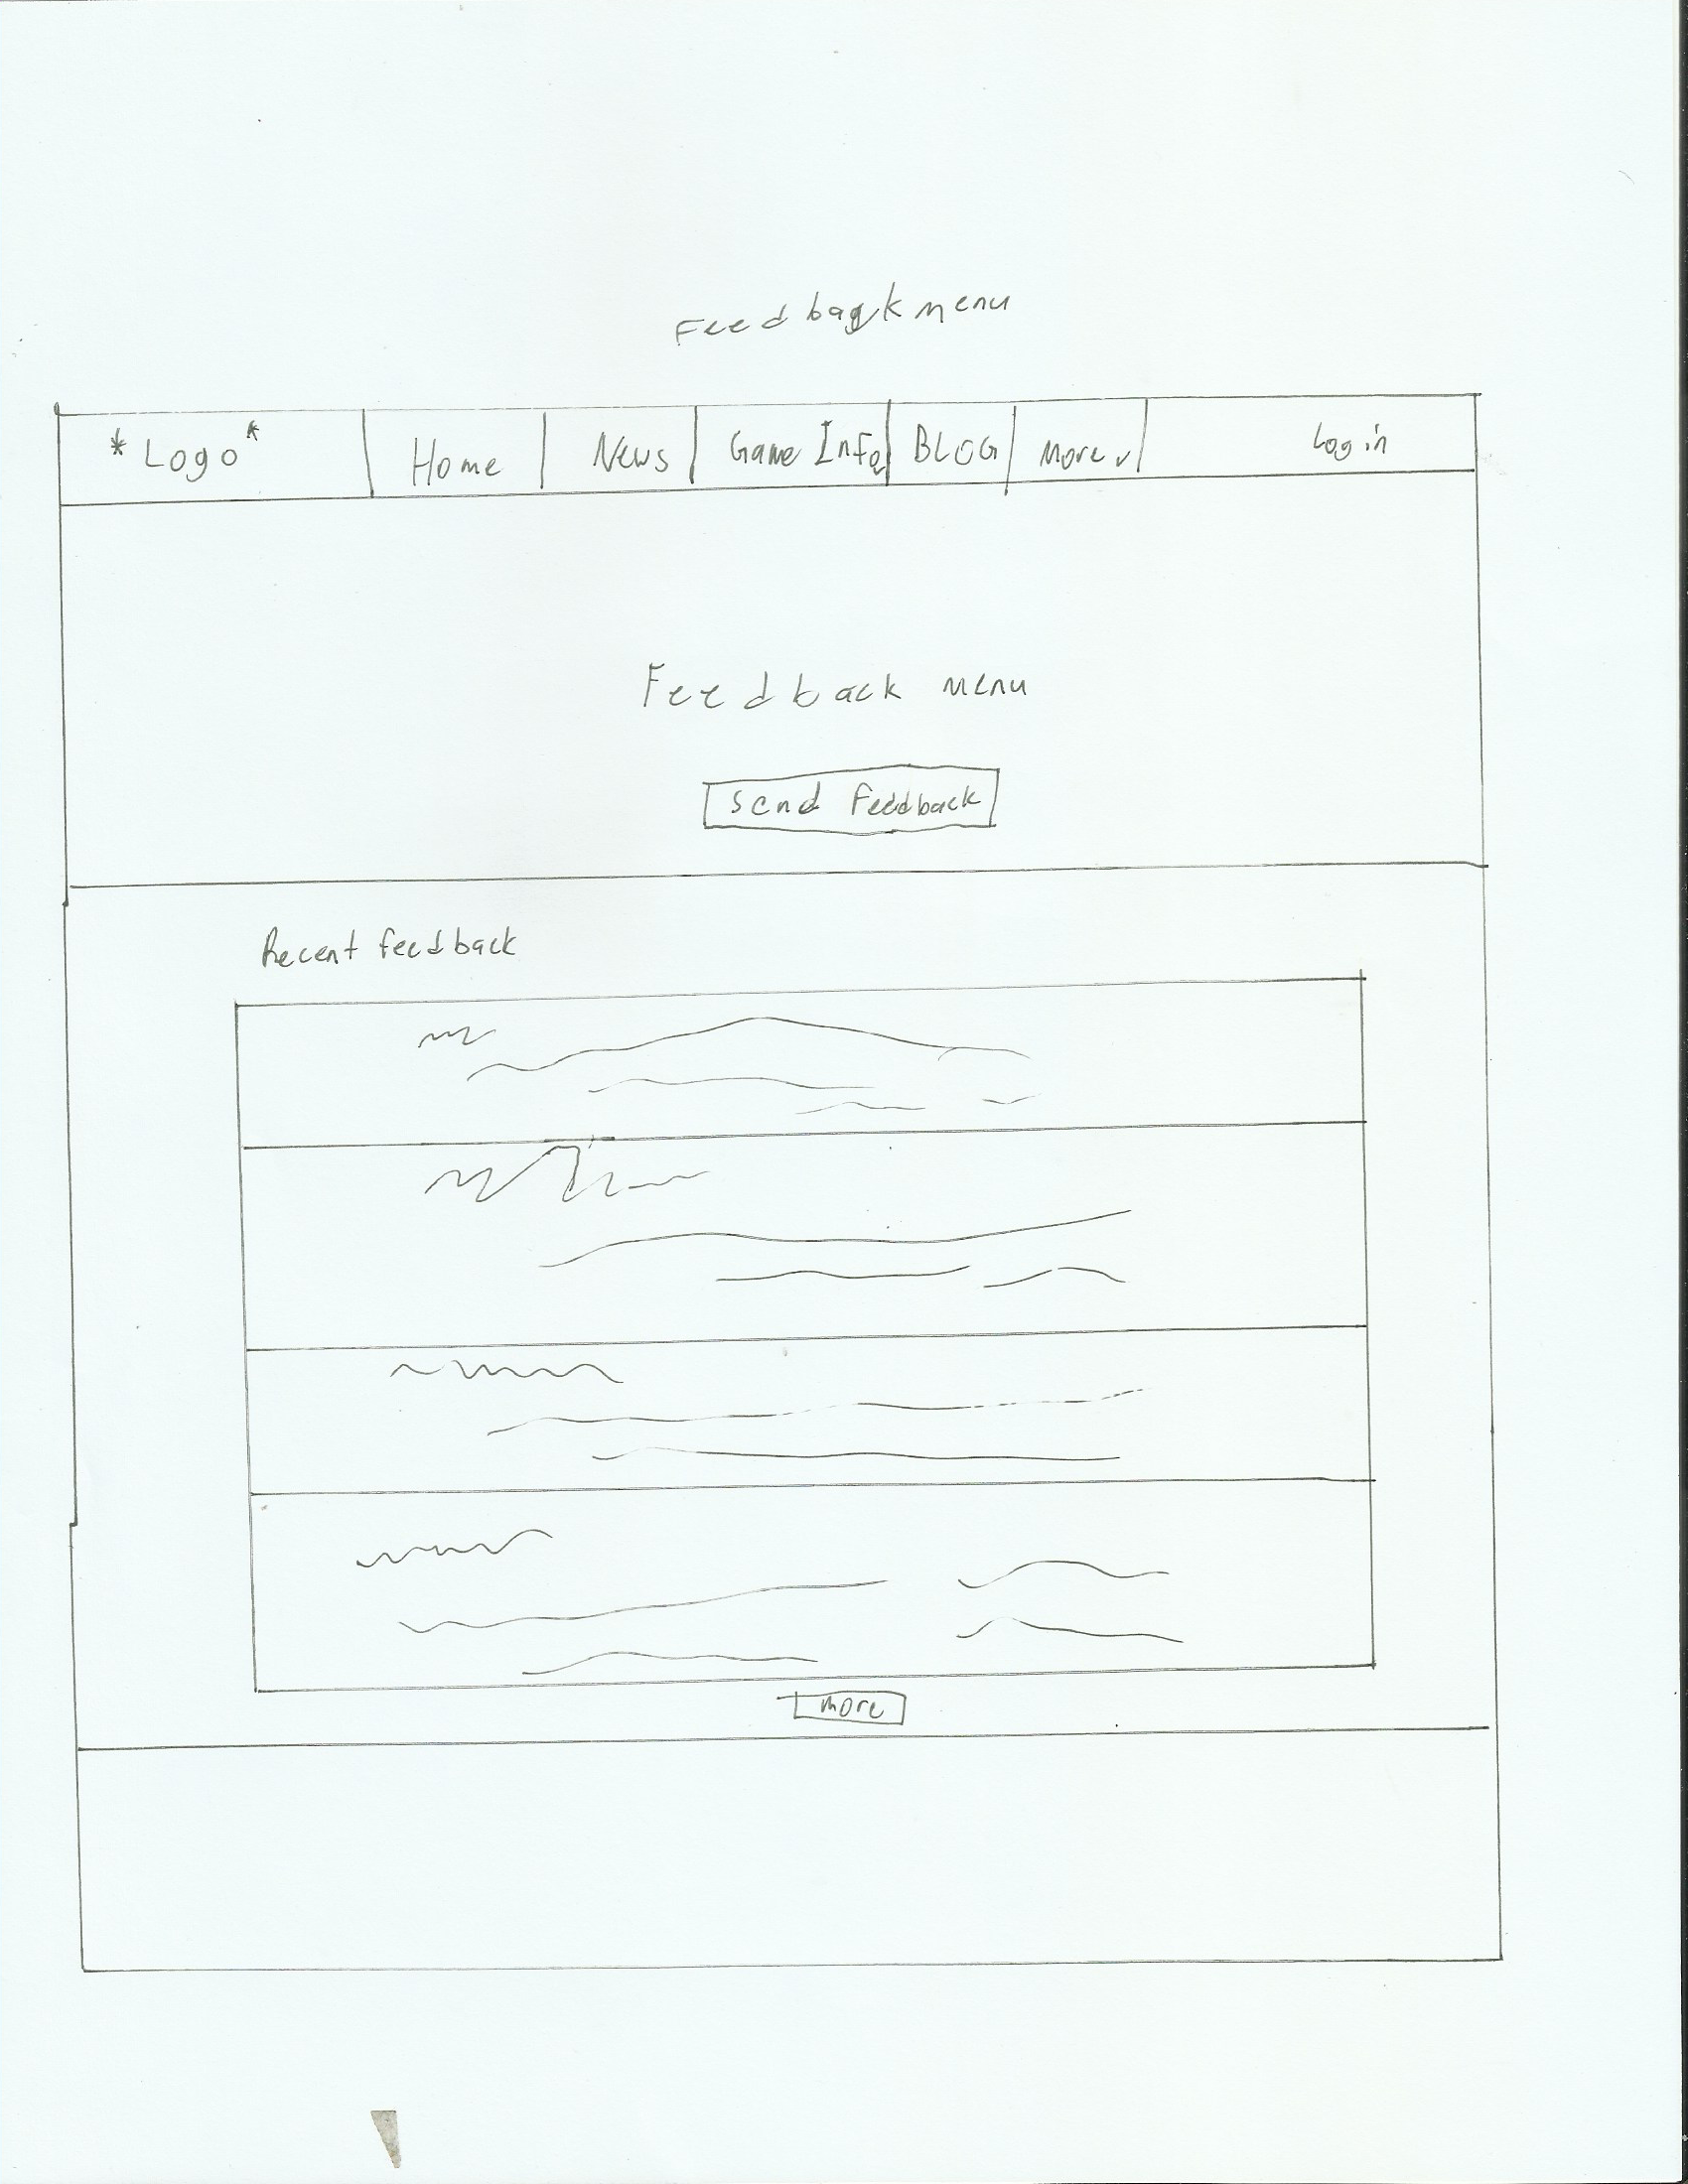 Feedback menu
*Logo* Home News Game Info BLOG More v Log in
Feedback menu
Send Feedback
Recent feedback
more